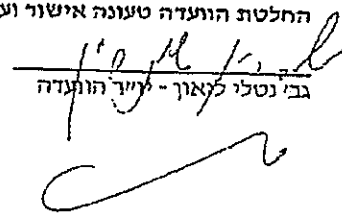 החלטת הוועדה טעונה אישור וע
גב' נטלי לנאוך - יו"ר הוועדה